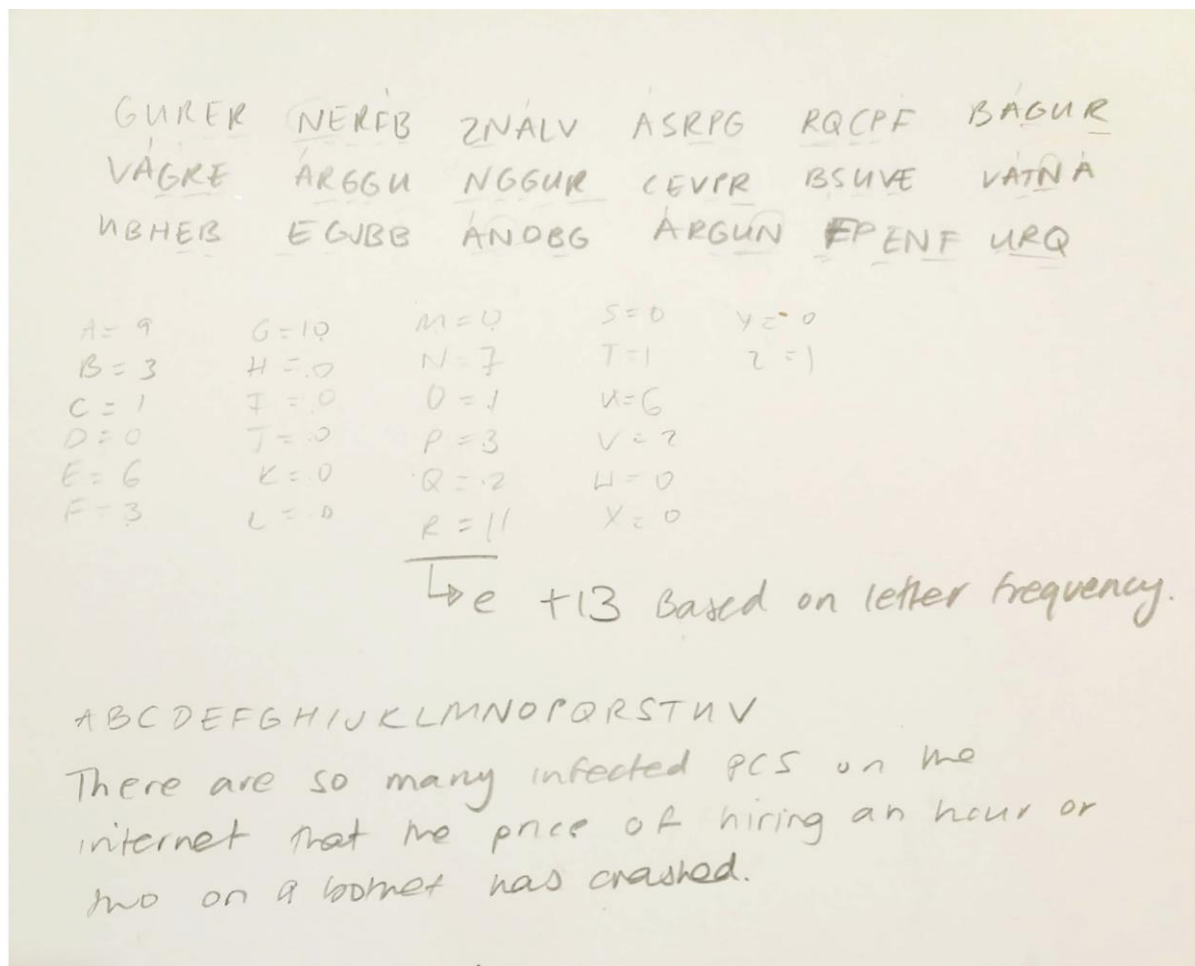 GURER NERFB ZNALV ASRPG RQCPF BAGUR
VAGRE ARGGU NGGUR CEVPR BSUVE VATNA
UBHEB EGJBB ANOBG ARGUN FPENF URQ
A = 9 G = 10 M = 0 S = 0 Y = 0
B = 3 H = 0 N = 7 T = 1 Z = 1
C = 1 I = 0 O = 1 U = 6
D = 0 J = 0 P = 3 V = 2
E = 6 K = 0 Q = 2 W = 0
F = 3 L = 0 R = 11 X = 0
e +13 Based on letter frequency.
ABCDEFGHIJKLMNOPQRSTUV
There are so many infected PCS on the
internet that the price of hiring an hour or
two on a botnet has crashed.